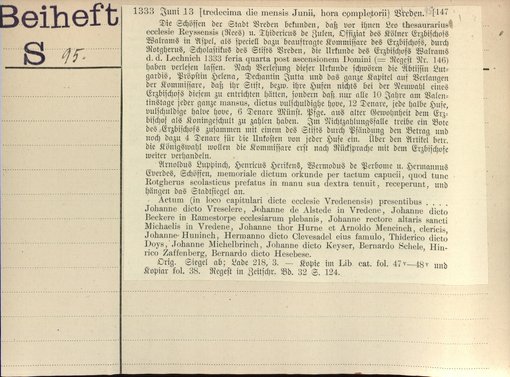 Beiheft
S 95.
1333 Juni 13 [tredecima die mensis Junii, hora completorii) Vreden. 147
Die Schöffen der Stadt Vreden bekunden, daß vor ihnen Leo thesaurarius
ecclesie Reyssensis (Rees) u. Thidericus de Zulen, Offizial des Kölner Erzbischofs
Walrams in Aspel, als speciell dazu beauftragte Kommissare des Erzbischofs, durch
Rotgherus, Scholastikus des Stifts Vreden, die Urkunde des Erzbischofs Walrams
d. d. Lechnich 1333 feria quarta post ascensionem Domini (= Regest Nr. 146)
haben verlesen lassen. Nach Verlesung dieser Urkunde schwören die Äbtissin Lut-
gardis, Pröpstin Helena, Dechantin Jutta und das ganze Kapitel auf Verlangen
der Kommissare, daß ihr Stift, bezw. ihre Hufen nichts bei der Neuwahl eines
Erzbischofs diesem zu entrichten hätten, sondern daß nur alle 10 Jahre am Valen-
tinstage jeder ganze mansus, dictus vulschuldighe hove, 12 Denare, jede halbe Hufe,
vulschuldige halve hove, 6 Denare Münst. Pfge. aus alter Gewohnheit dem Erz-
bischof als Koningeschult zu zahlen haben. Im Nichtzahlungsfalle treibe ein Bote
des Erzbischofs zusammen mit einem des Stifts durch Pfändung den Betrag und
noch dazu 4 Denare für die Unkosten von jeder Hufe ein. Über den Artikel betr.
die Königswahl wollen die Kommissare erst nach Rücksprache mit dem Erzbischofe
weiter verhandeln.
Arnoldus Luppinch, Henricus Herikens, Wermodus de Perbome u. Hermannus
Everdes, Schöffen, memoriale dictum orkunde per tactum capucii, quod tunc
Rotgherus scolasticus prefatus in manu sua dextra tenuit, receperunt, und
hängen das Stadtsiegel an.
Actum (in loco capitulari dicte ecclesie Vredensis) presentibus . . . .
Johanne dicto Vreselere, Johanne de Alstede in Vredene, Johanne dicto
Beckere in Ramestorpe ecclesiarum plebanis, Johanne rectore altaris sancti
Michaelis in Vredene, Johanne thor Hurne et Arnoldo Mencinch, clericis,
Johanne Huninch, Hermanno dicto Clevesadel eius famulo, Thiderico dicto
Doys, Johanne Michelbrinch, Johanne dicto Keyser, Bernardo Schele, Hin-
rico Zaffenberg, Bernardo dicto Hesebese.
Orig. Siegel ab; Lade 218, 3. — Kopie im Lib cat. fol. 47v—48v und
Kopiar fol. 38. Regest in Zeitschr. Bd. 32 S. 124.